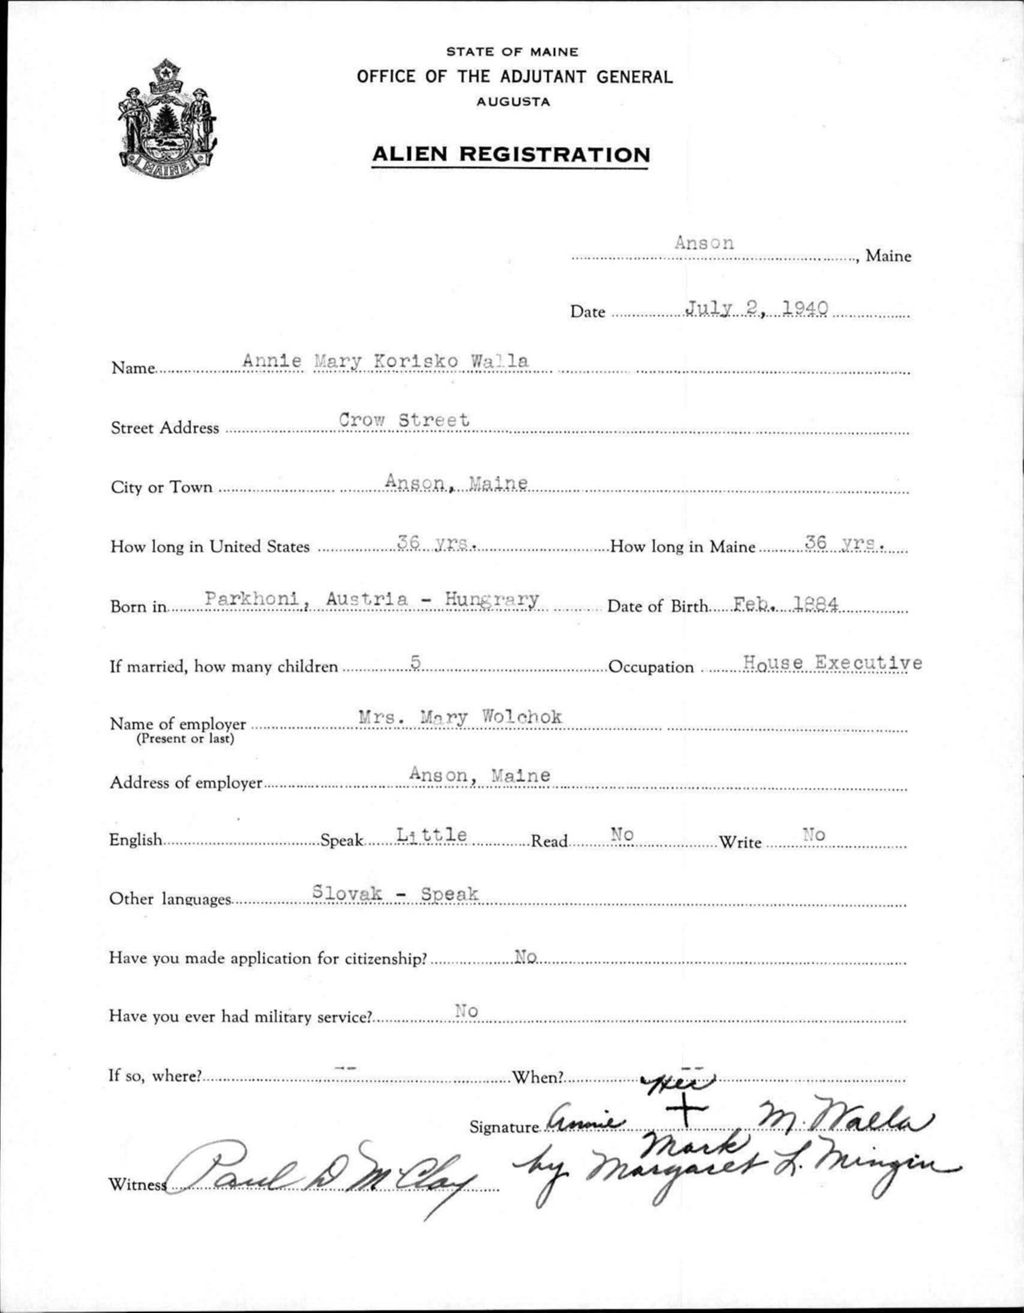 STATE OF MAINE
OFFICE OF THE ADJUTANT GENERAL
AUGUSTA
ALIEN REGISTRATION
MAINE
Anson, Maine
Date July 2, 1940
Name Annie Mary Korisko Walla
Street Address Crow Street
City or Town Anson, Maine
How long in United States 36 yrs. How long in Maine 36 yrs.
Born in Parkhoni, Austria - Hungrary Date of Birth Feb. 1884
If married, how many children 5 Occupation House Executive
Name of employer Mrs. Mary Wolchok
(Present or last)
Address of employer Anson, Maine
English Speak Little Read No Write No
Other languages Slovak - Speak
Have you made application for citizenship? No
Have you ever had military service? No
If so, where? -- When? --
Her
Signature Annie + M. Walla
Mark
by Margaret L. Mingin
Witness Paul D McClay